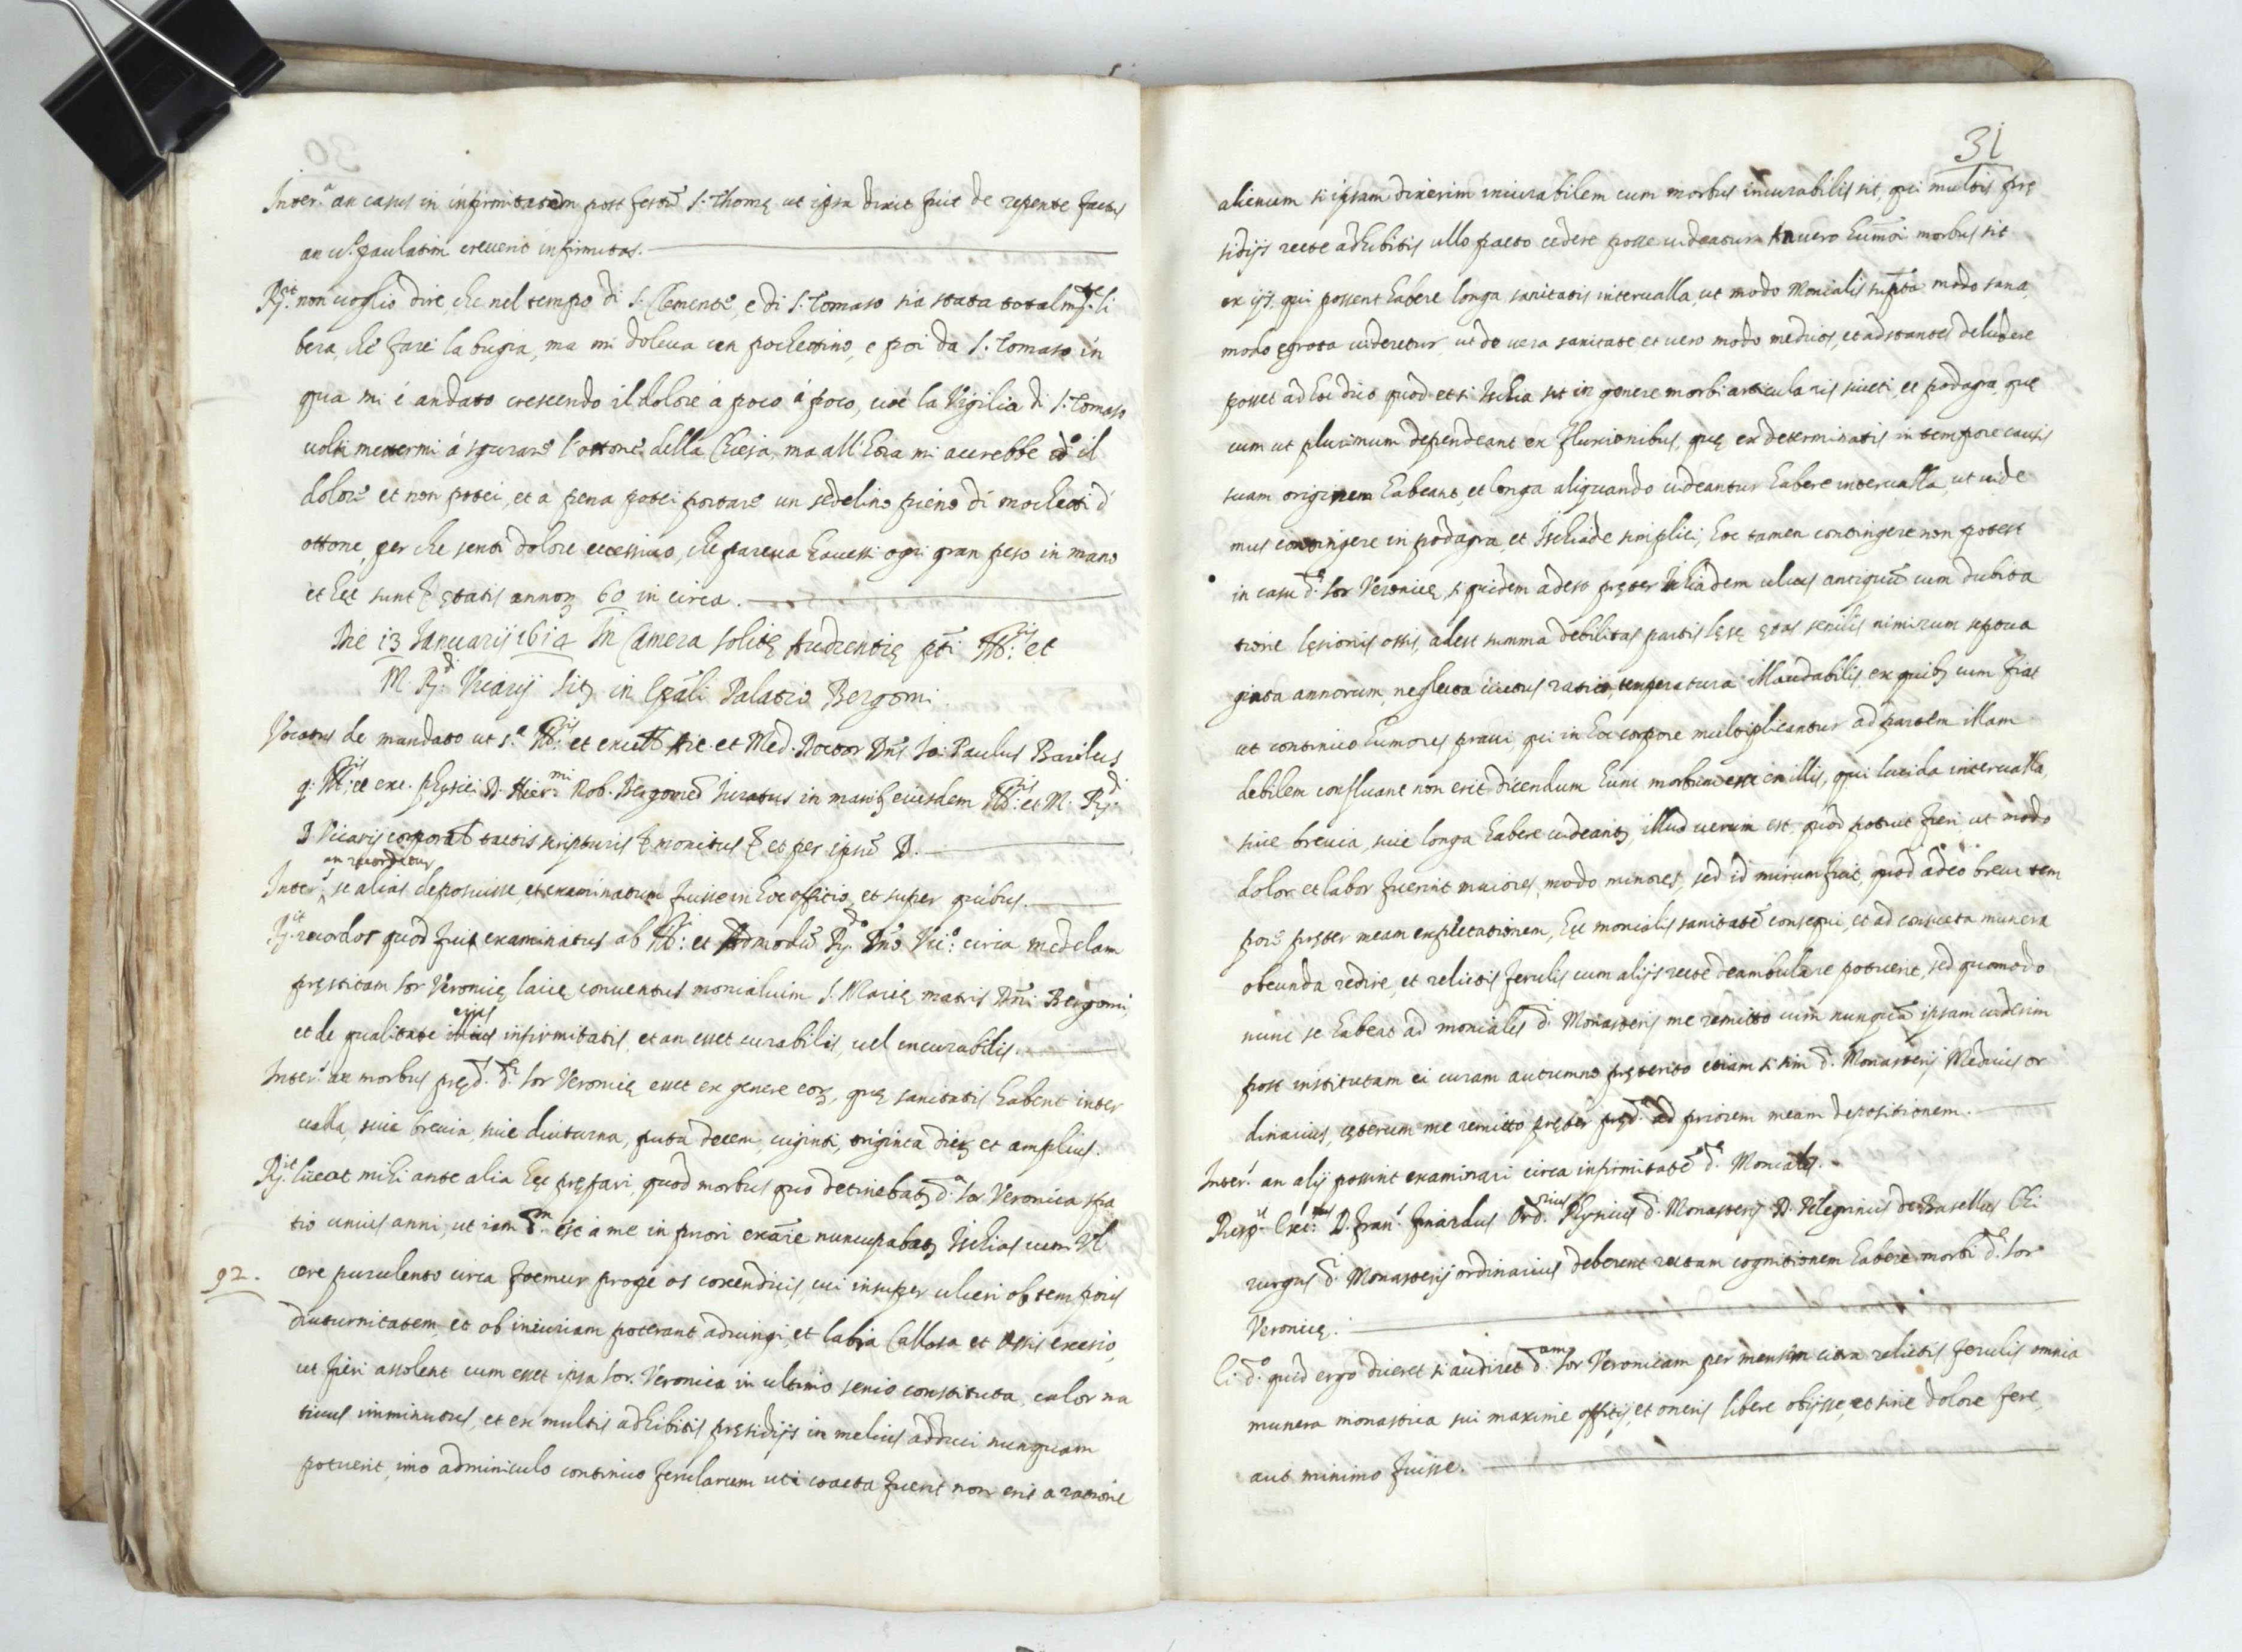 Inter.ª an casus in infirmitatem post festũ S. Thomę ut ipsa dixit fuit de repente factus
an v.º paulatim creuerit infirmitas.
R.et non uoglio dire, che nel tempo di S. Clemente, e di S. Tomaso sia stata totalm.te li
bera, chè farei la bugia, ma mi doleua un pochettino, e poi da S. Tomaso in
qua mi è andato crescendo il dolore à poco à poco, cioè la Vigilia di S. Tomaso
uolsi mettermi à sgurare l'ottone della Chiesa, ma all'hora mi accrebbe il
dolore et non potei, et a pena potei portare un sedelino pieno di mochetti d'
ottone, per che senti dolore eccessiuo, che pareua hauessi ogni gran peso in mano
et hęc sunt ętatis annoꝝ 60 in circa.
Die 13 Januarij 1614 In Camera solitę Audientię pti Ill.ris et
M. R.di Vicarij sitę in Epãli Palatio Bergomi.
Vocatus de mandato ut s.ª Ill.ris et excell.s Art. et Med. Doctor Dñs Jo: Paulus Barilus
q. Ill.ris et exc. physici D. Hier.mi Nob. Bergomẽs Iuratus in manibꝫ eiusdem Ill.ris et M. R.di
D Vicarij corporal.r tactis scripturis monitus et per ipsũ D.
an recordetur
Inter.s se alias deposuisse et examinatum fuisse in hoc officio, et super quibus.
R.it recordor quod fui examinatus ab Ill.ri et Admodũ R.do Dño Vic.º circa medelam
pręstitam sor Veronicę laicę conuentus monialium S. Marię matris Dñi Bergomi,
eius
et de qualitate illius infirmitatis, et an esset curabilis, uel incurabilis.
Inter.s an morbus pręd. d.ę sor Veronicę esset ex genere eoꝝ, quę sanitatis habent inter
ualla, siue breuia, siue diuturna, puta decem, uiginti, triginta dieꝝ et amplius.
R.it liceat mihi ante alia hęc pręfari, quod morbus quo detinebatꝫ d.ª sor Veronica spa
tio unius anni, ut iam d.m est à me in priori exãie nuncupabatꝫ Ischias cum Vl
92. cere purulento circa foemur prope os coxendicis, cui insuper ulceri ob temporis
diuturnitatem, et ob incuriam poterant adiungi, et labia callosa et ossis excesio,
ut fieri assolent cum esset ipsa sor. Veronica in ultimo senio constituta, calor na
tiuus imminutus, et ex multis adhibitis pręsidijs in melius adduci nunquam
potuerit, imo adminiculo continuo ferularum uti coacta fuerit non erit a ratione
31
alienum si ipsam dixerim incurabilem cum morbus incurabilis sit, qui multis prę
sidijs recte adhibitis ullo pacto cedere posse uideatur. An uero huĩmõi morbus sit
ex ijs, qui possent habere longa sanitatis interualla, ut modo Monialis supta modo sana,
modo ęgrota uideretur, ut de uera sanitate et uero modo medicos, et adstantes deludere
posset ad hoc dico quod etsi Ischia sit in genere morbi articularis sicuti, et podagra, quę
cum ut plurimum dependeant ex fluxionibus, quę ex determinatis in tempore causis
suam originem habeant, et longa aliquando uideantur habere interualla, ut uide
mus contingere in podagra, et Ischiade simplici, hoc tamen contingere non potest
in casu d.ę sor Veronicę, siquidem adest pręter Ischiadem ulcus antiquũ cum dubita
tione lęsionis ossis, adest summa debilitas partis lęsę ętas senilis nimirum septua
ginta annorum, neglecta uictus ratio, temperatura illaudabilis, ex quibꝫ cum fiat
ut continuo humores praui, qui in hoc corpore multiplicantur ad partem illam
debilem confluant non erit dicendum hunc morbum esse ex illis, qui lucida interualla,
siue breuia, siue longa habere uideantꝫ, illud uerum est quod potuit fieri, ut modo
dolor et labor fuerint maiores, modo minores, sed id mirum fuit, quod adeo breui tem
pore pręter meam expectationem, hęc monialis sanitatẽ consequi, et ad consueta munera
obeunda redire, et relictis ferulis cum alijs recte deambulare potuerit, sed quomodo
nunc se habeat ad moniales d.i Monasterij me remitto cum nunquã ipsam uiderim
post institutam ei curam autumno pręterito etiam si sim d.i Monasterij Medicus or
dinarius, cęterum me remitto pręter pręd. ad priorem meam depositionem.
Inter.s an alij possint examinari circa infirmitatẽ d.ę Monialis.
Resp.it Exc.mus D. Fran.s Finardus Ord.rius Physicus d.i Monasterij D. Pelegrinus de Basellis Chi
rurgus d.i Monasterij ordinarius deberent rectam cognitionem habere morbi d.ę sor
Veronicę.
Ei d.º quid ergo diceret si audiret d.am sor Veronicam per mensem citra relictis ferulis omnia
munera monastica sui maxime officij, et oneris libere obijsse, et sine dolore fere,
aut minimo fuisse.